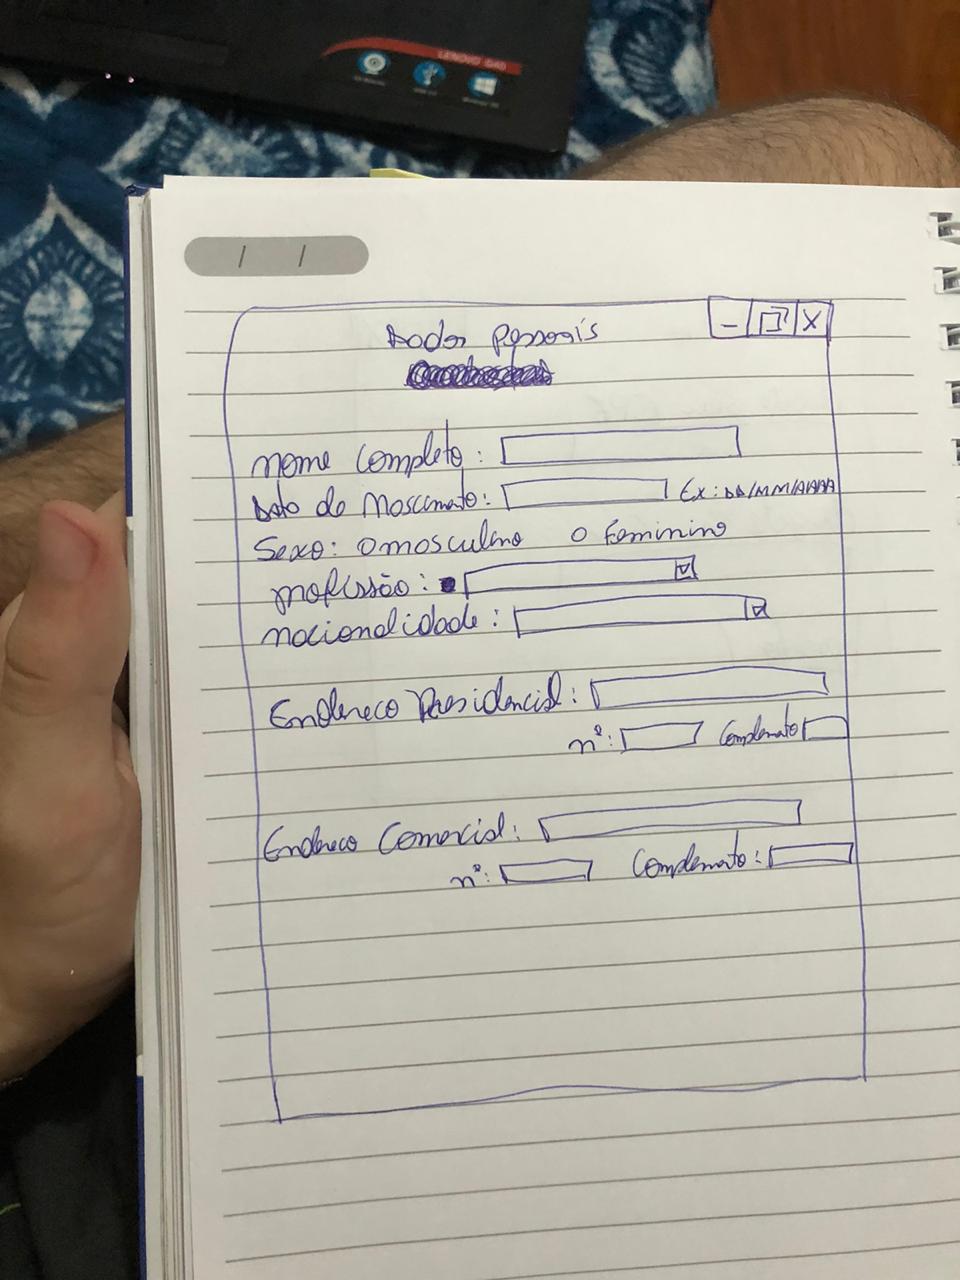 LENOVO G40
/ /
Dados Pessoais
Nome Completo:
Data de Nascimento: Ex: DD/MM/AAAA
Sexo: O masculino O Feminino
profissão:
nacionalidade:
Endereco Residencial:
nº: Complemento
Endereco Comercial:
nº: Complemento: